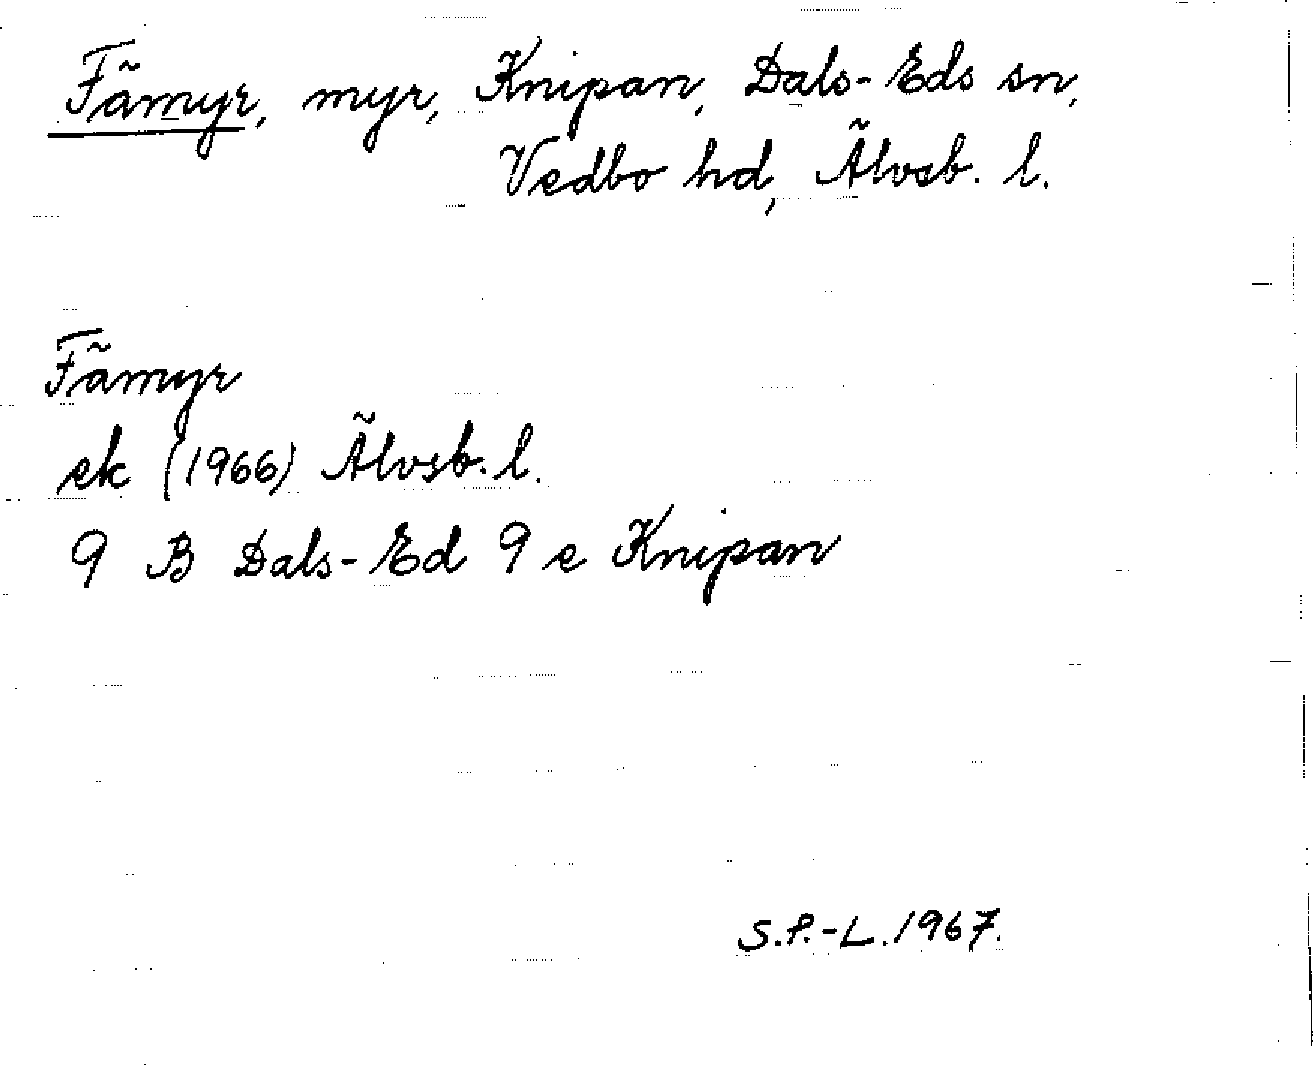 Fämyr, myr, Knipan, Dals-Eds sn,
Vedbo hd, Älvsb. l.
Fämyr
ek (1966) Älvsb. l.
9 B Dals-Ed 9 e Knipan
S.P.-L. 1967.